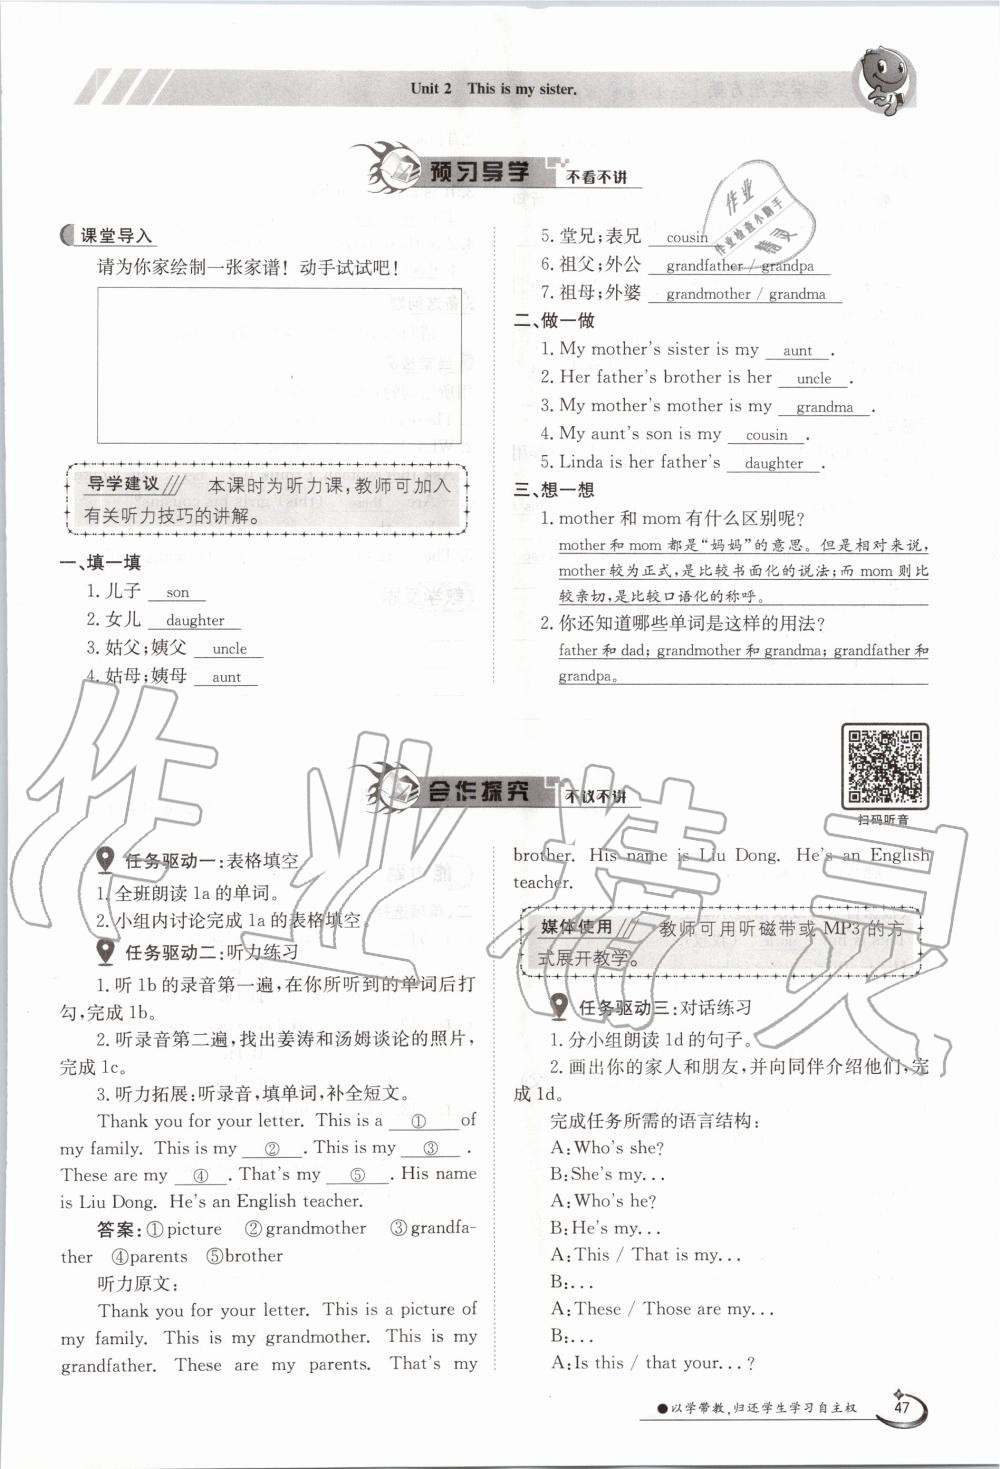 Unit 2 This is my sister.
预习导学 不看不讲
课堂导入
请为你家绘制一张家谱！动手试试吧！
导学建议 本课时为听力课,教师可加入
有关听力技巧的讲解。
一、填一填
1. 儿子 son
2. 女儿 daughter
3. 姑父;姨父 uncle
4. 姑母;姨母 aunt
5. 堂兄;表兄 cousin
6. 祖父;外公 grandfather / grandpa
7. 祖母;外婆 grandmother / grandma
二、做一做
1. My mother's sister is my aunt .
2. Her father's brother is her uncle .
3. My mother's mother is my grandma .
4. My aunt's son is my cousin .
5. Linda is her father's daughter .
三、想一想
1. mother 和 mom 有什么区别呢?
mother 和 mom 都是“妈妈”的意思。但是相对来说,
mother 较为正式,是比较书面化的说法;而 mom 则比
较亲切,是比较口语化的称呼。
2. 你还知道哪些单词是这样的用法?
father 和 dad; grandmother 和 grandma; grandfather 和
grandpa。
作业
作业检查小助手
精灵
合作探究 不议不讲
扫码听音
任务驱动一:表格填空
1. 全班朗读 1a 的单词。
2. 小组内讨论完成 1a 的表格填空。
任务驱动二:听力练习
1. 听 1b 的录音第一遍,在你所听到的单词后打
勾,完成 1b。
2. 听录音第二遍,找出姜涛和汤姆谈论的照片,
完成 1c。
3. 听力拓展:听录音,填单词,补全短文。
Thank you for your letter. This is a ① of
my family. This is my ② . This is my ③ .
These are my ④ . That's my ⑤ . His name
is Liu Dong. He's an English teacher.
答案:①picture ②grandmother ③grandfa-
ther ④parents ⑤brother
听力原文:
Thank you for your letter. This is a picture of
my family. This is my grandmother. This is my
grandfather. These are my parents. That's my
brother. His name is Liu Dong. He's an English
teacher.
媒体使用 教师可用听磁带或 MP3 的方
式展开教学。
任务驱动三:对话练习
1. 分小组朗读 1d 的句子。
2. 画出你的家人和朋友,并向同伴介绍他们,完
成 1d。
完成任务所需的语言结构:
A:Who's she?
B:She's my...
A:Who's he?
B:He's my...
A:This / That is my...
B:...
A:These / Those are my...
B:...
A:Is this / that your...?
作业精灵
●以学带教,归还学生学习自主权
47